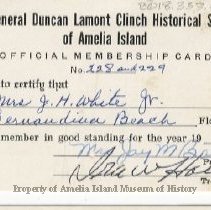 General Duncan Lamont Clinch Historical S
of Amelia Island
OFFICIAL MEMBERSHIP CARD
No. 228 and 229
to certify that
Mrs J. H. White Jr.
Fernandina Beach Flo
member in good standing for the year 19
Mrs Jay M.
Property of Amelia Island Museum of History